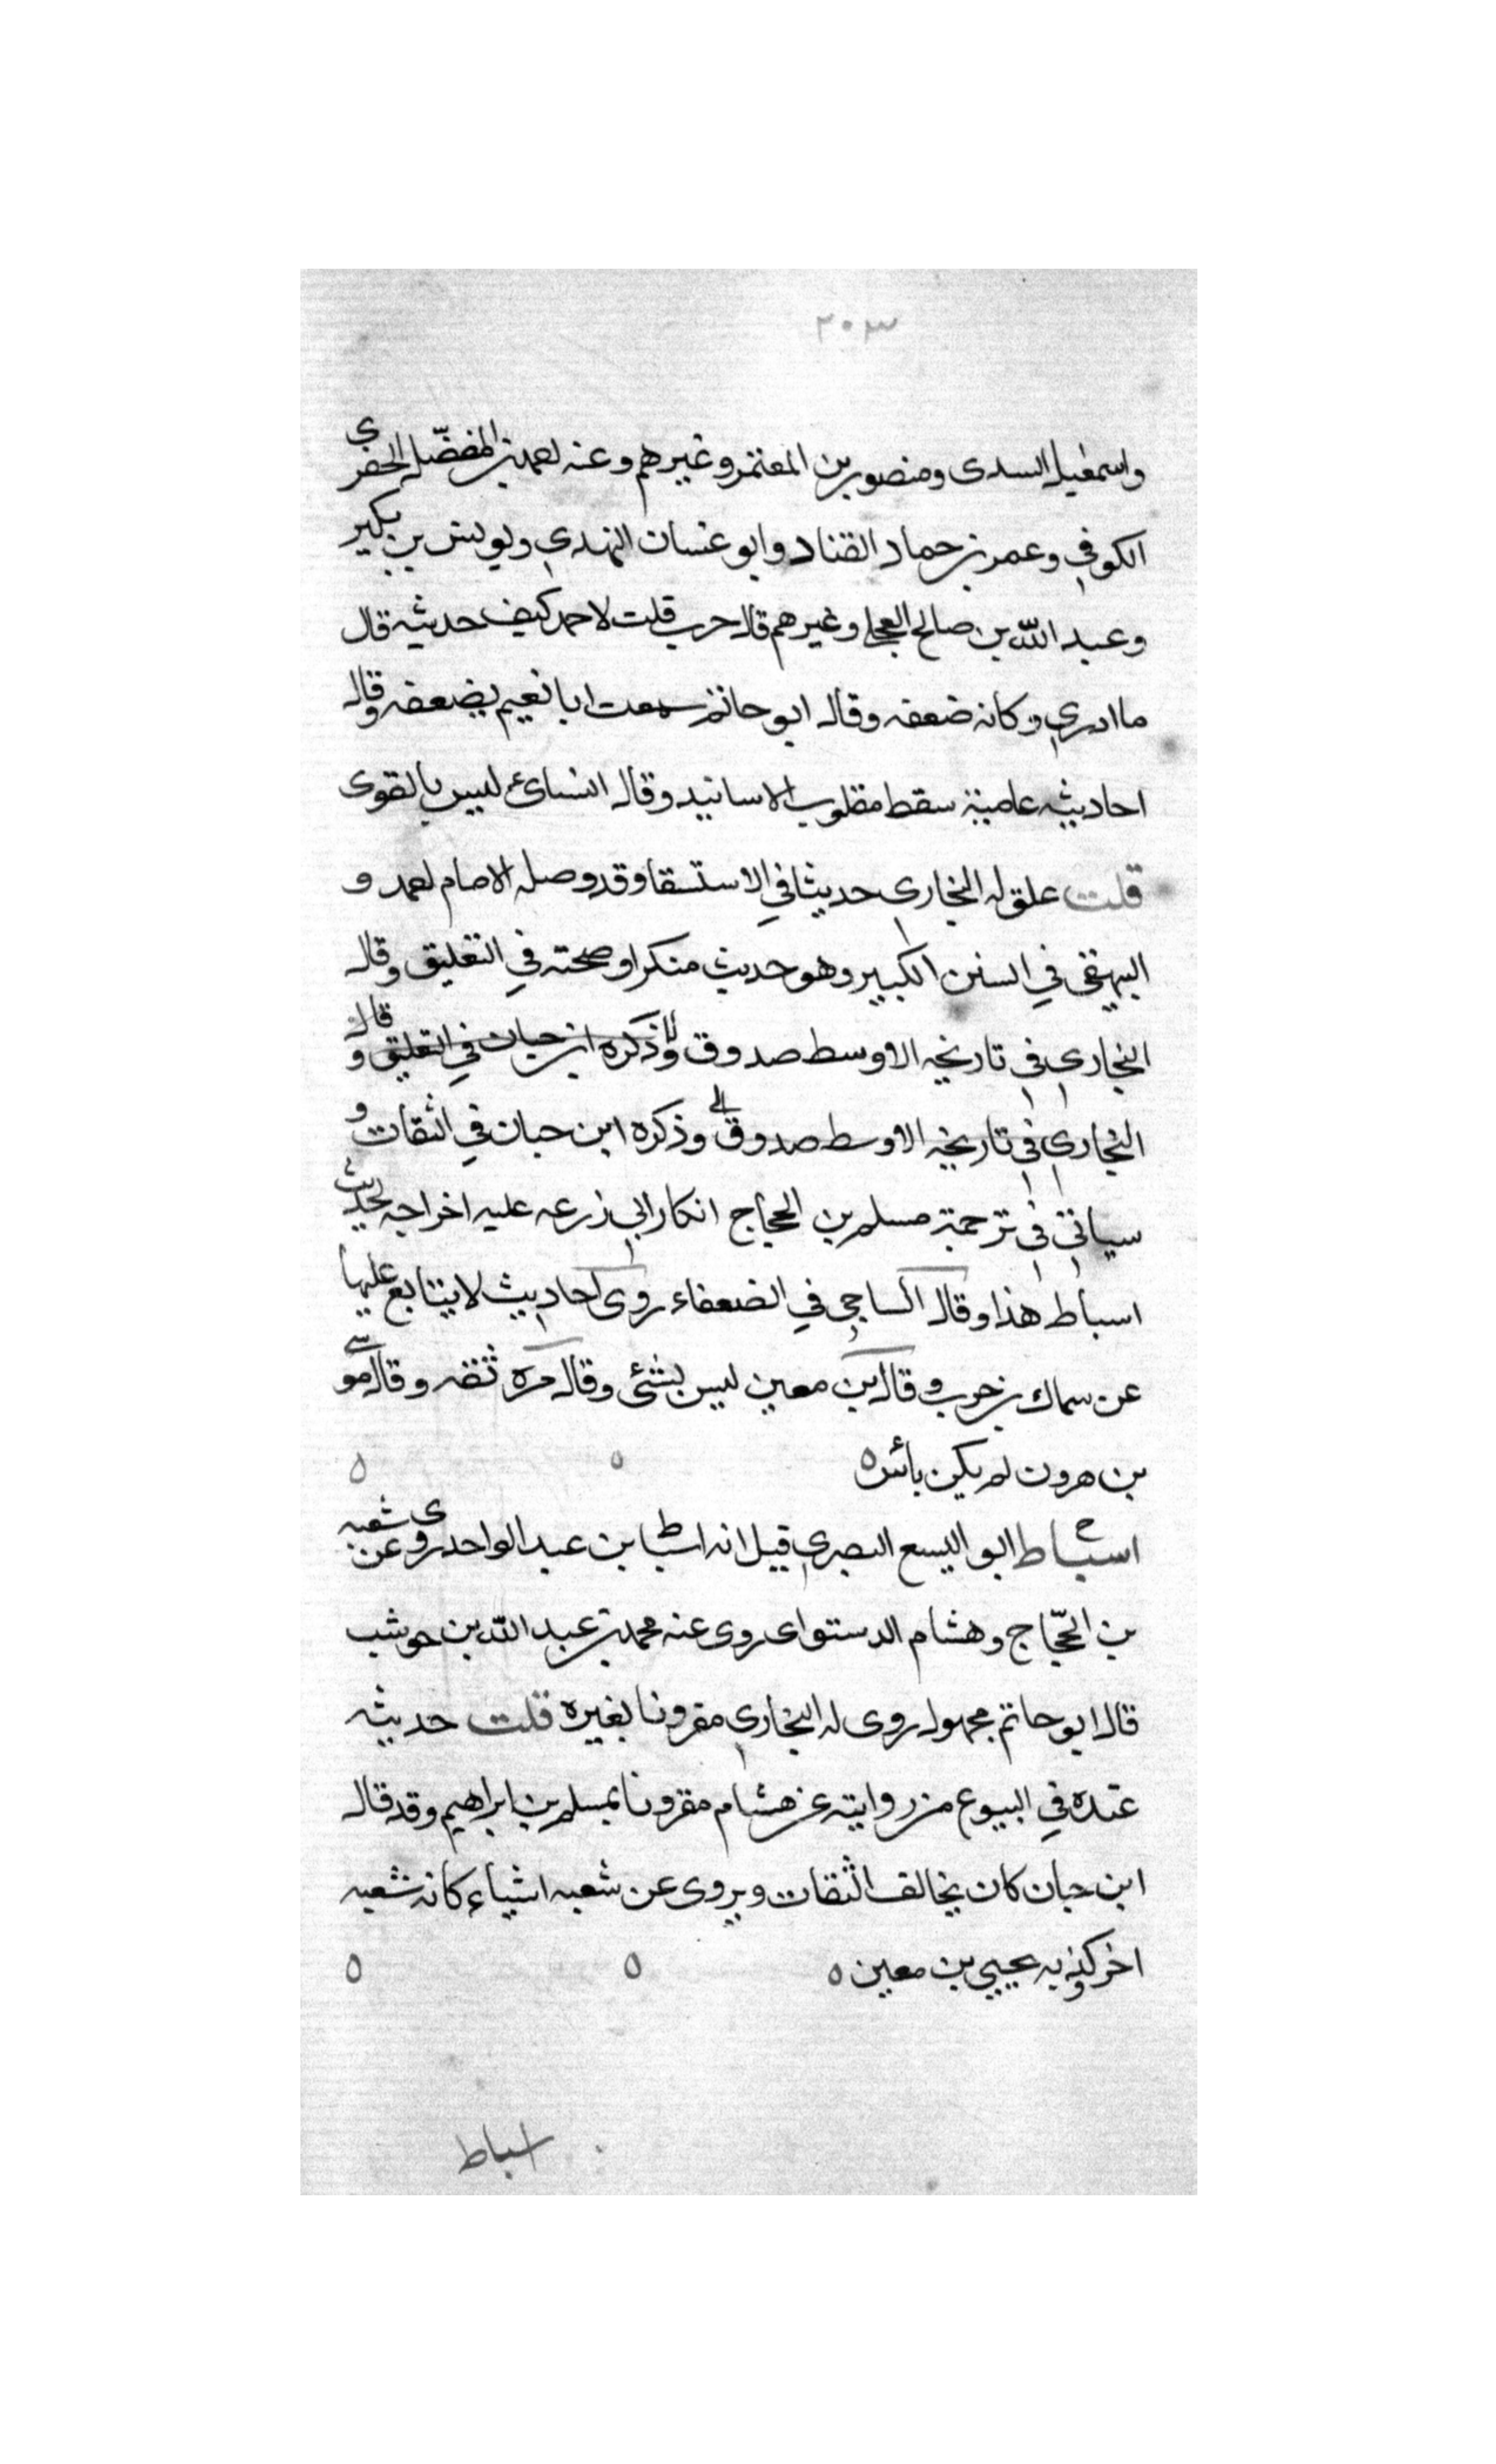 ٢٠٣
واسمعيل السدى ومنصور بن المعتمر وغيرهم وعنه احمد بن المفضّل الحفرى
الكوفي وعمر بن حماد القناد وابو غسان النهدي ويونس بن بكير
وعبد اللّه بن صالح العجلي وغيرهم قال حرب قلت لاحمد كيف حديثه قال
ما ادري وكانه ضعفه وقال ابو حاتم سمعت ابا نعيم يضعفه وقال
احاديثه عامية سقط مقلوب الاسانيد وقال النسائ ليس بالقوى
قلت علق له البخاري حديثا في الاستسقا وقد وصله الامام احمد و
البيهقى في السنن الكبير وهو حديث منكر اوضحته في التعليق وقال
البخاري في تاريخه الاوسط صدوق وذكره ابن حبان في التعليق وقال
البخاري في تاريخه الاوسط صدوق وذكره ابن حبان في الثقات و
سياتي في ترجمة مسلم بن الحجاج انكار ابي زرعه عليه اخراجه لحديث
اسباط هذا وقال الساجي في الضعفاء روى احاديث لا يتابع عليها
عن سماك بن حرب وقال ابن معين ليس بشئ وقال مرة ثقه وقال موسى
بن هرون لم يكن به بأس ه ه ه
اسباط ابو اليسع البصري قيل انه اسباط بن عبد الواحد روى عن شعبه
بن الحجّاج وهشام الدستواى روى عنه محمد بن عبد اللّه بن حوشب
قال ابو حاتم مجهول روى له البخاري مقرونا بغيره قلت حديثه
عنده في البيوع من روايته عن هشام مقرونا بمسلم بن ابراهيم وقد قال
ابن حبان كان يخالف الثقات ويروى عن شعبه اشياء كانه شعبه
اخر وكذبه يحيي بن معين ه ه ه
اسباط